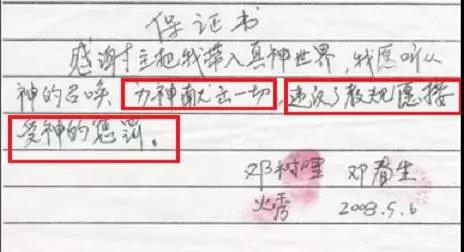 保证书
感谢主把我带入真神世界，我愿听从
神的召唤，为神献出一切，违反了教规愿接
受神的惩罚。
邓树哩 邓春生
火秀 2008.5.6